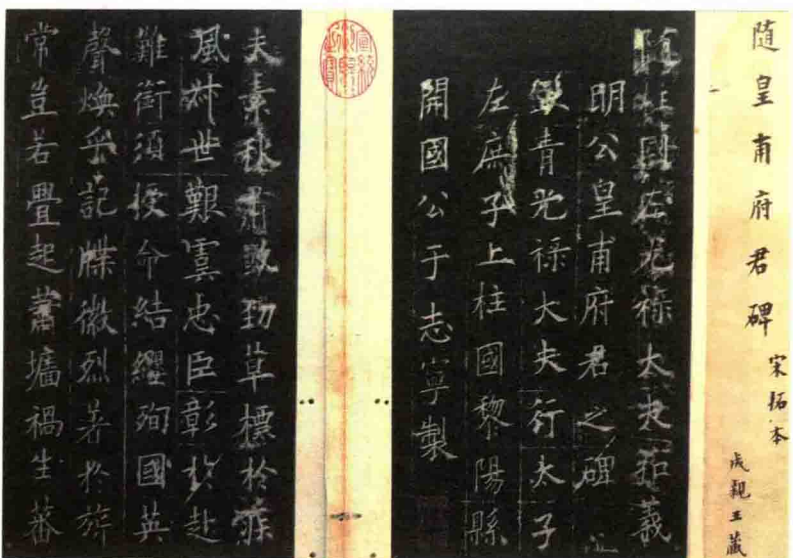 隨皇甫府君碑 宋拓本
成親王藏
隨柱國左光祿大夫弘義
明公皇甫府君之碑
銀青光祿大夫行太子
左庶子上柱國黎陽縣
開國公于志寧製
宣統御覽之寶
夫素秋肅煞勁草標於疾
風叔世艱虞忠臣彰於赴
難銜須授命結纓殉國英
聲煥乎記牒徽烈著於旂
常豈若舋起蕭墻禍生蕃